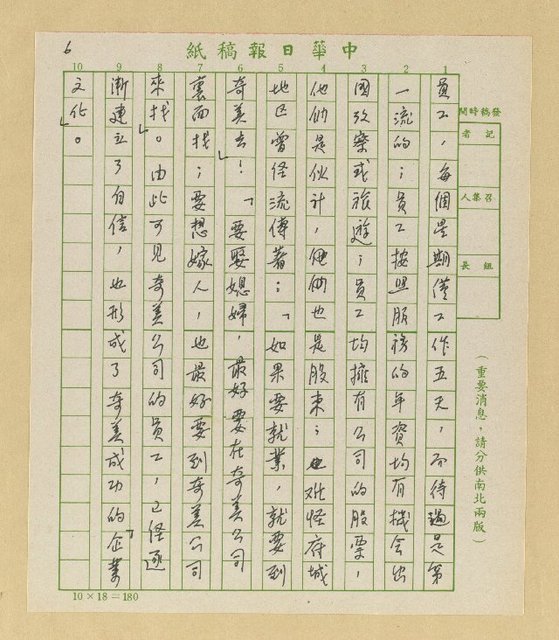 6
中華日報稿紙
發稿時間
記者
召集人
組長
(重要消息,請分供南北兩版)
1 2 3 4 5 6 7 8 9 10
員工,每個星期僅工作五天,而待遇是第
一流的;員工按照服務的年資均有機會出
國考察或旅遊;員工均擁有公司的股票,
他們是伙計,他們也是股東;也難怪府城
地區曾經流傳著:「如果要就業,就要到
奇美去!」「要娶媳婦,最好要在奇美公司
裏面找;要想嫁人,也最好要到奇美公司
來找。」由此可見奇美公司的員工,已經逐
漸建立了自信,也形成了奇美成功的「企業
文化」。
10×18=180